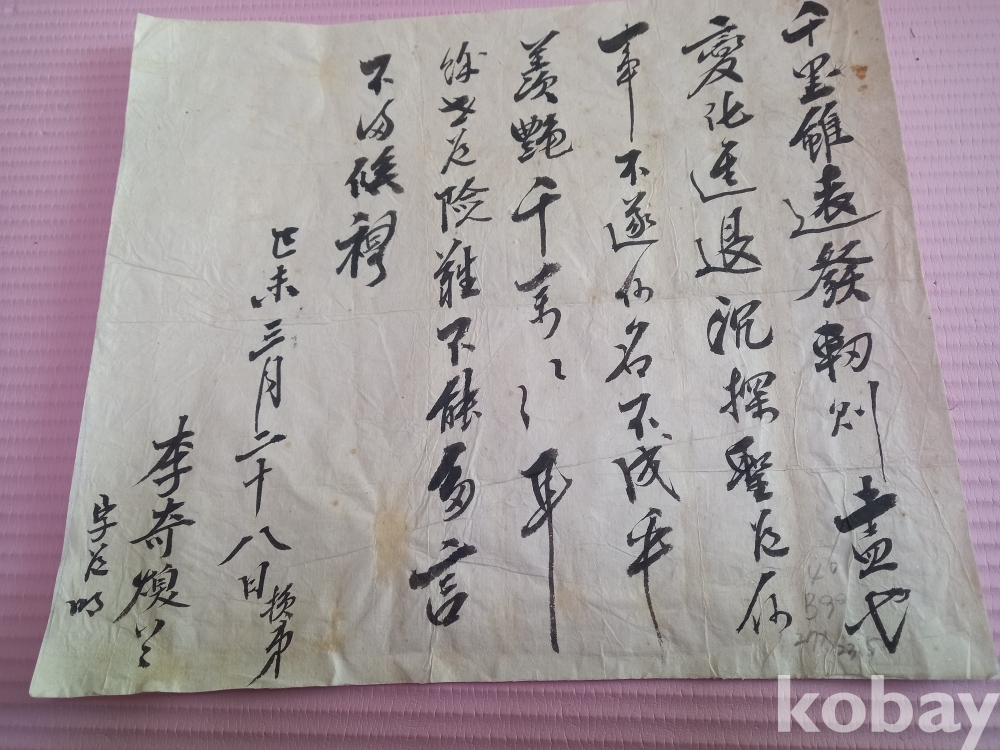 千里雖遠發軔則盡也
變化進退況探聖道何
事不遂何名不成乎
羨艶千萬〻〻耳
餘世道險難不能多言
不備候禮
己未三月二十八日損弟
李奇煥
字道明
kobay